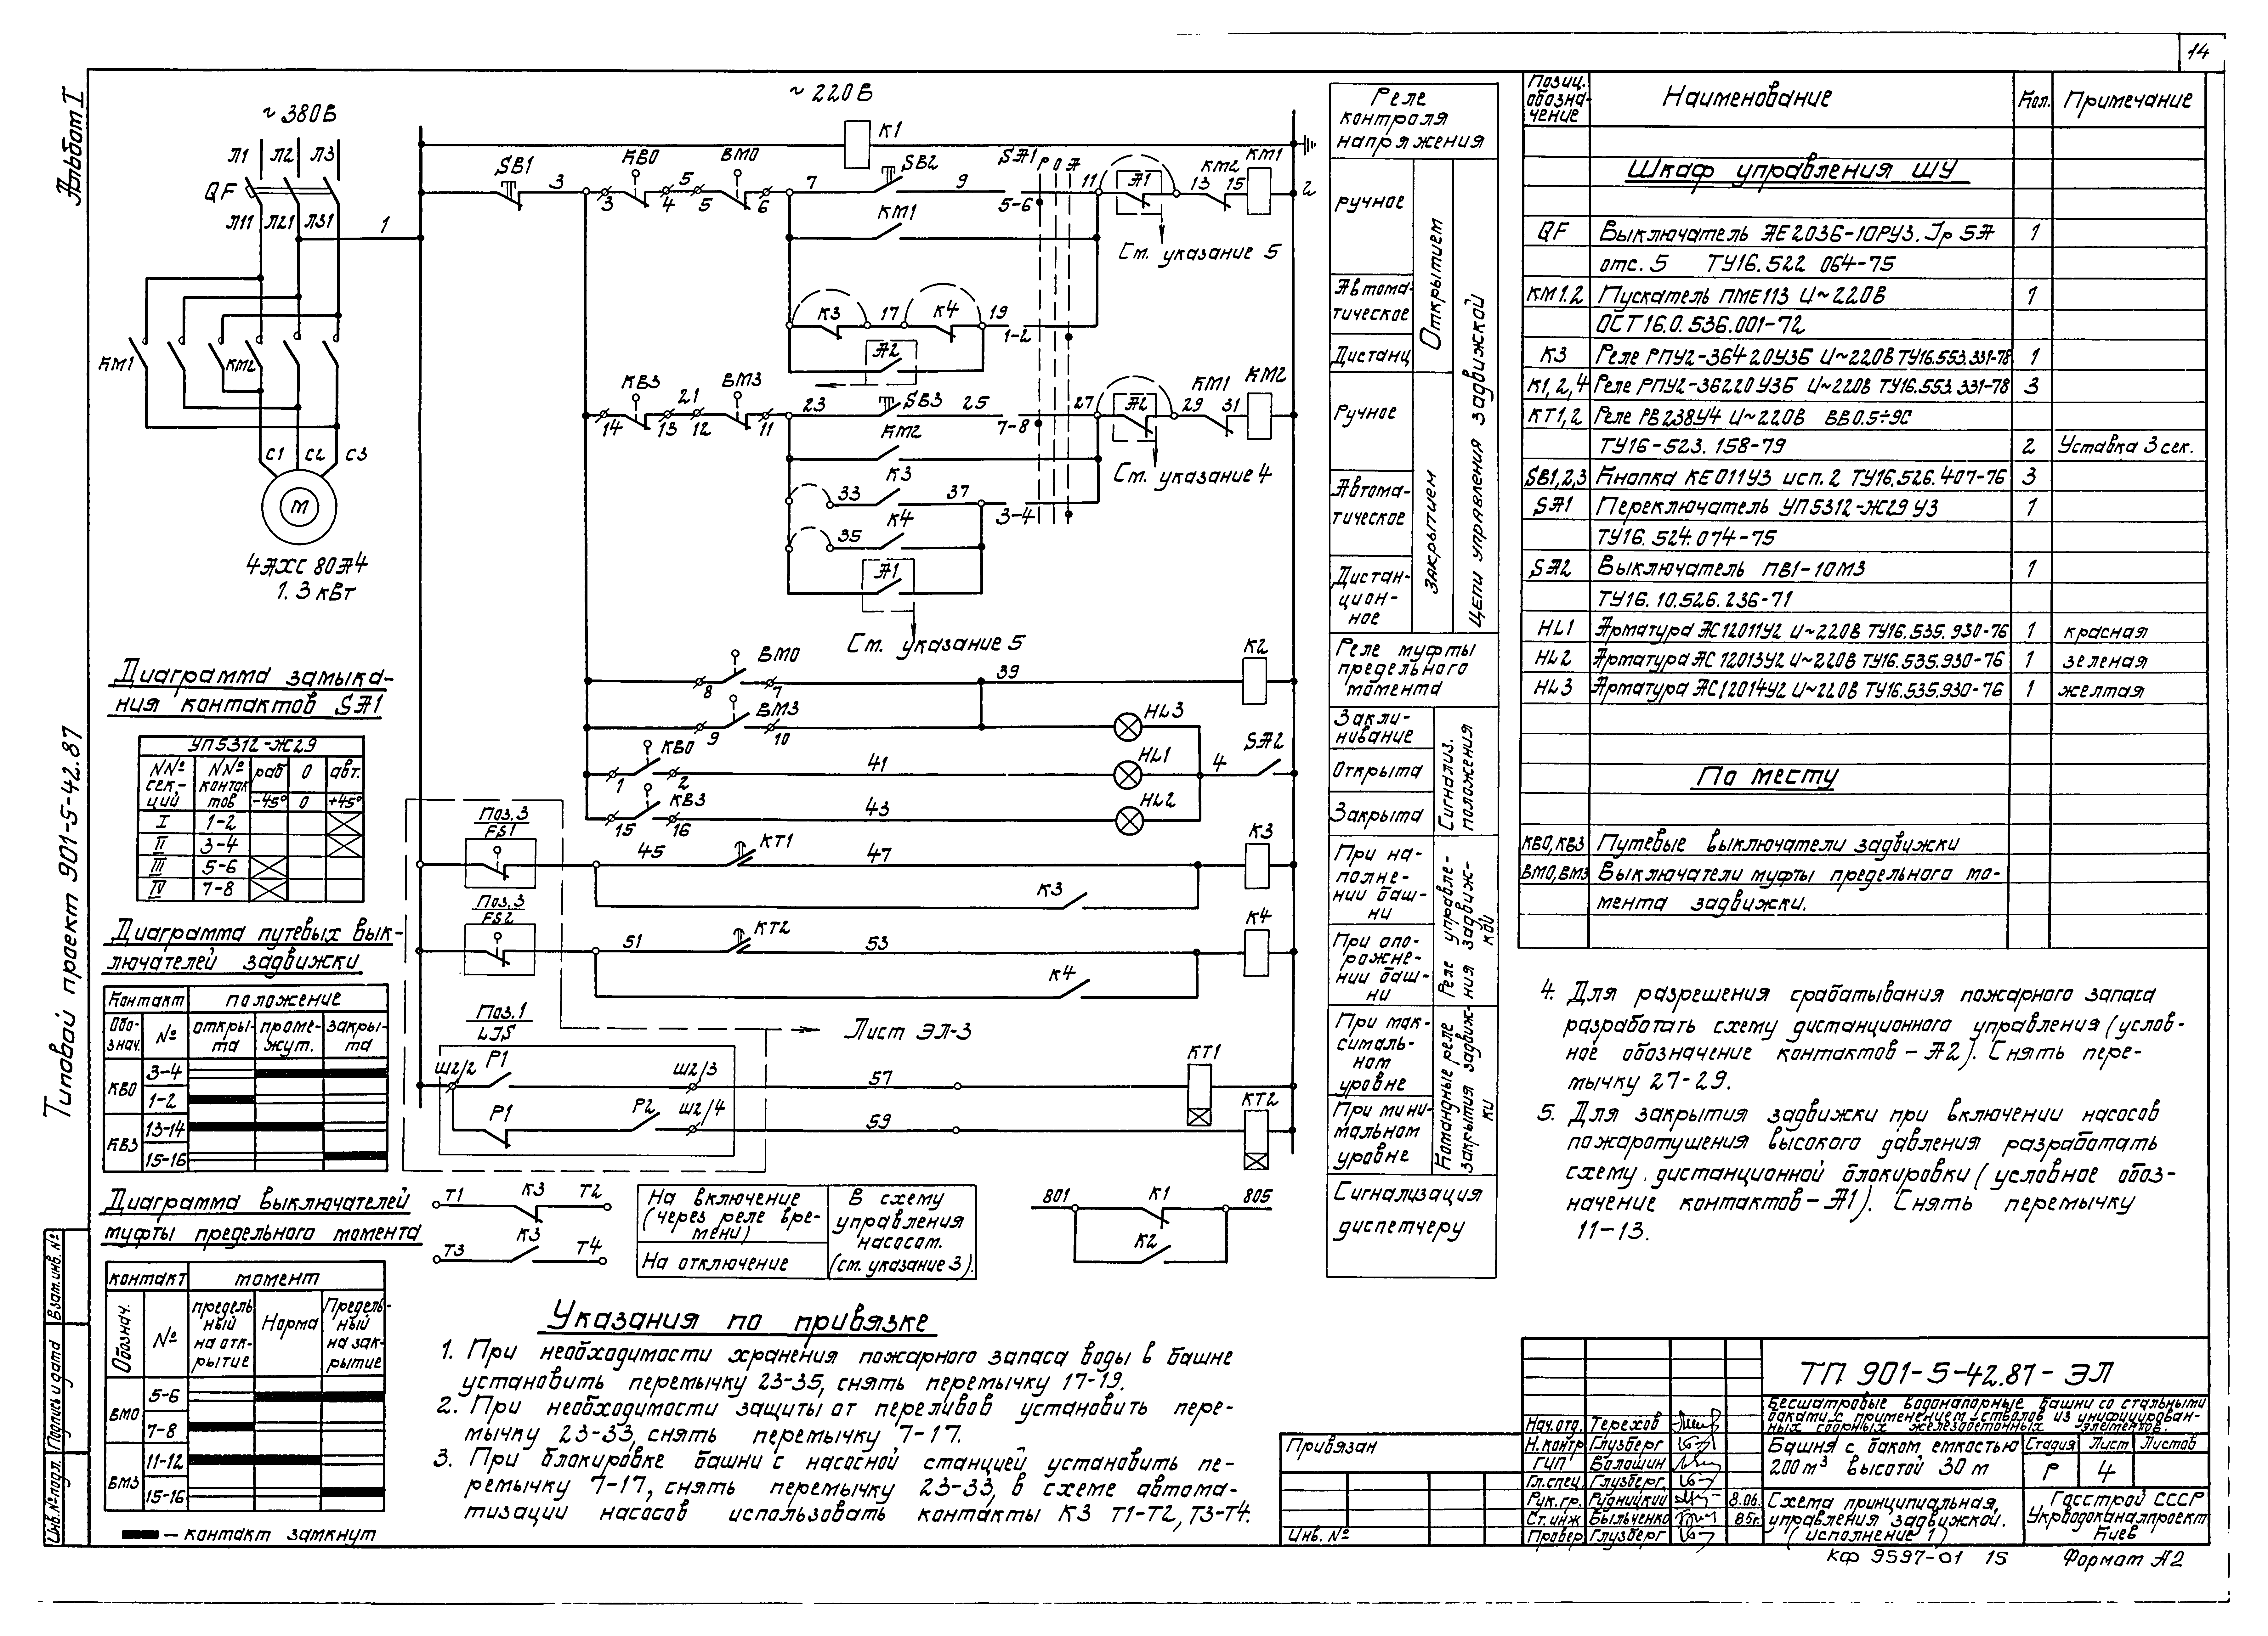 14
Альбом I
Типовой проект 901-5-42.87
Взам.инв.№
Подпись и дата
Инв.№ подл.
~380В
Л1 Л2 Л3
QF
Л11 Л21 Л31
1
КМ1
КМ2
С1 С2 С3
М
4АХС 80А4
1.3 кВт
~220В
К1
SB1 3 КВО 5 ВМО 7 SB2 9 SА1 Р О А 11 А1 КМ2 КМ1
3 4 5 6 5-6 13 15 2
КМ1
См. указание 5
К3 17 К4 19
1-2
А2
КВЗ 21 ВМЗ 23 SB3 25 27 А2 29 КМ1 31 КМ2
14 13 12 11 7-8
КМ2
См. указание 4
33 К3 37
3-4
35 К4
А1
См. указание 5
ВМО 39 К2
8 7
ВМЗ HL3
9 10
КВО 41 HL1 4 SА2
1 2
КВЗ 43 HL2
15 16
Поз.3
FS1
45 КТ1 47 К3
К3
Поз.3
FS2
51 КТ2 53 К4
К4
Поз.1
LJS
Лист ЭЛ-3
Ш2/2 Р1 Ш2/3 57 КТ1
Р1 Р2 Ш2/4 59 КТ2
Т1 К3 Т2
Т3 К3 Т4
На включение
(через реле вре-
мени)
На отключение
В схему
управления
насосом.
(см. указание 3).
801 К1 805
К2
Реле
контроля
напряжения
ручное
Автома-
тическое
Дистанц
Открытием
Ручное
Автома-
тическое
Дистан-
цион-
ное
закрытием
Цепи управления задвижкой
Реле муфты
предельного
момента
Закли-
нивание
Открыта
Закрыта
Сигнализ.
положения
При на-
полне-
нии баш-
ни
При опо-
рожне-
нии баш-
ни
Реле управле-
ния задвиж-
кой
При мак-
сималь-
ном
уровне
При мини-
мальном
уровне
Командные реле
закрытия задвиж-
ки
Сигнализация
диспетчеру
Диаграмма замыка-
ния контактов SА1
УП5312-Ж29
NN° сек-ций NN° контактов раб 0 авт.
-45° 0 +45°
I 1-2
II 3-4
III 5-6
IV 7-8
Диаграмма путевых вык-
лючателей задвижки
Контакт положение
Обо-знач. № откры-та проме-жут. закры-та
КВО 3-4
1-2
КВЗ 13-14
15-16
Диаграмма выключателей
муфты предельного момента
контакт момент
Обознач. № предельный на открытие Норма Предель-ный на зак-рытие
ВМО 5-6
7-8
ВМЗ 11-12
15-16
— контакт замкнут
Указания по привязке
1. При необходимости хранения пожарного запаса воды в башне
установить перемычку 23-35, снять перемычку 17-19.
2. При необходимости защиты от переливов установить пере-
мычку 23-33, снять перемычку 7-17.
3. При блокировке башни с насосной станцией установить пе-
ремычку 7-17, снять перемычку 23-33, в схеме автома-
тизации насосов использовать контакты К3 Т1-Т2, Т3-Т4.
Позиц. обозна-чение Наименование Кол. Примечание
Шкаф управления ШУ
QF Выключатель АЕ2036-10РУЗ. Jр 5А 1
отс. 5 ТУ16.522 064-75
КМ1.2 Пускатель ПМЕ113 U~220В 1
ОСТ16.0.536.001-72
К3 Реле РПУ2-36420У3Б U~220В ТУ16.553.331-78 1
К1,2,4 Реле РПУ2-36220У3Б U~220В ТУ16.553.331-78 3
КТ1,2 Реле РВ238У4 U~220В ВВ0.5÷9С
ТУ16-523.158-79 2 Уставка 3 сек.
SB1,2,3 Кнопка КЕ011У3 исп.2 ТУ16.526.407-76 3
SА1 Переключатель УП5312-Ж29 У3 1
ТУ16.524.074-75
SА2 Выключатель ПВ1-10М3 1
ТУ16.10.526.236-71
HL1 Арматура АС12011У2 U~220В ТУ16.535.930-76 1 красная
HL2 Арматура АС12013У2 U~220В ТУ16.535.930-76 1 зеленая
HL3 Арматура АС12014У2 U~220В ТУ16.535.930-76 1 желтая
По месту
КВО,КВЗ Путевые выключатели задвижки
ВМО,ВМЗ Выключатели муфты предельного мо-
мента задвижки.
4. Для разрешения срабатывания пожарного запаса
разработать схему дистанционного управления (услов-
ное обозначение контактов – А2). Снять пере-
мычку 27-29.
5. Для закрытия задвижки при включении насосов
пожаротушения высокого давления разработать
схему дистанционной блокировки (условное обоз-
начение контактов – А1). Снять перемычку
11-13.
Привязан
Инв. №
Нач.отд. Терехов
Н.контр Глузберг
ГИП Волошин
Гл.спец. Глузберг
Рук.гр. Рудницкий 8.06.
Ст.инж Быльченко 85г.
Провер Глузберг
ТП 901-5-42.87-ЭЛ
Бесшатровые водонапорные башни со стальными
баками с применением стволов из унифицирован-
ных сборных железобетонных элементов.
Башня с баком емкостью
200 м³ высотой 30 м
Стадия Лист Листов
Р 4
Схема принципиальная
управления задвижкой.
(исполнение 1)
Госстрой СССР
Укрводоканалпроект
Киев
КФ 9597-01 15 Формат А2